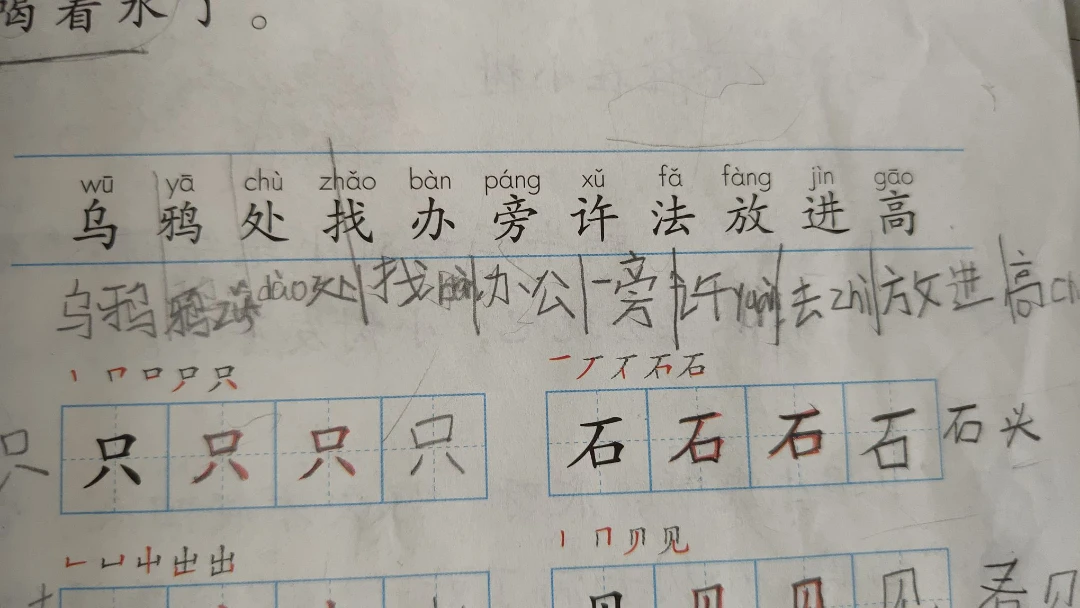 喝着水了。
wū yā chù zhǎo bàn páng xǔ fǎ fàng jìn gāo
乌 鸦 处 找 办 旁 许 法 放 进 高
乌鸦 鸦 dào处 找 办公 一旁 许 去 zhǐ 放进 高
丨 口 只
一 丆 石 石
只 只 只 只 只
石 石 石 石 石头
出 出
丨 冂 贝 见
见 见 见 见 看见